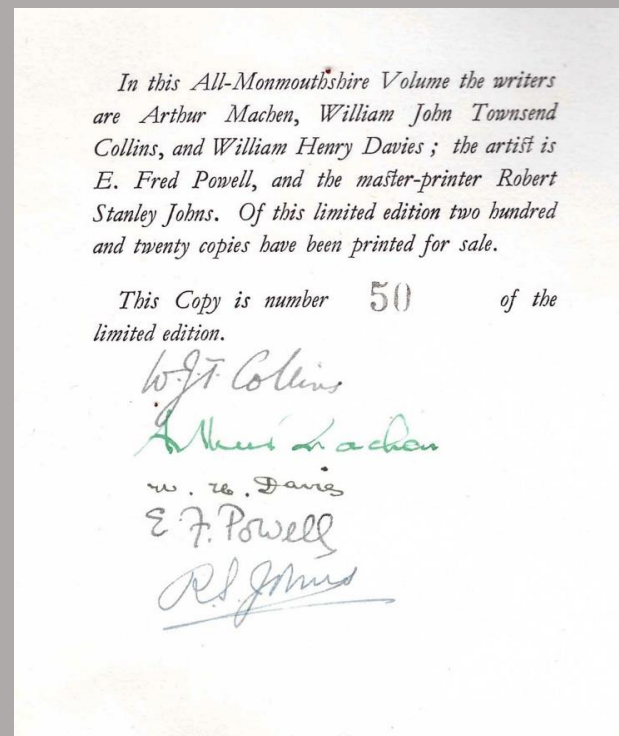 In this All-Monmouthshire Volume the writers
are Arthur Machen, William John Townsend
Collins, and William Henry Davies ; the artist is
E. Fred Powell, and the master-printer Robert
Stanley Johns. Of this limited edition two hundred
and twenty copies have been printed for sale.
This Copy is number 50 of the
limited edition.
W.J.T. Collins
Arthur Machen
W. H. Davies
E. F. Powell
R.S. Johns